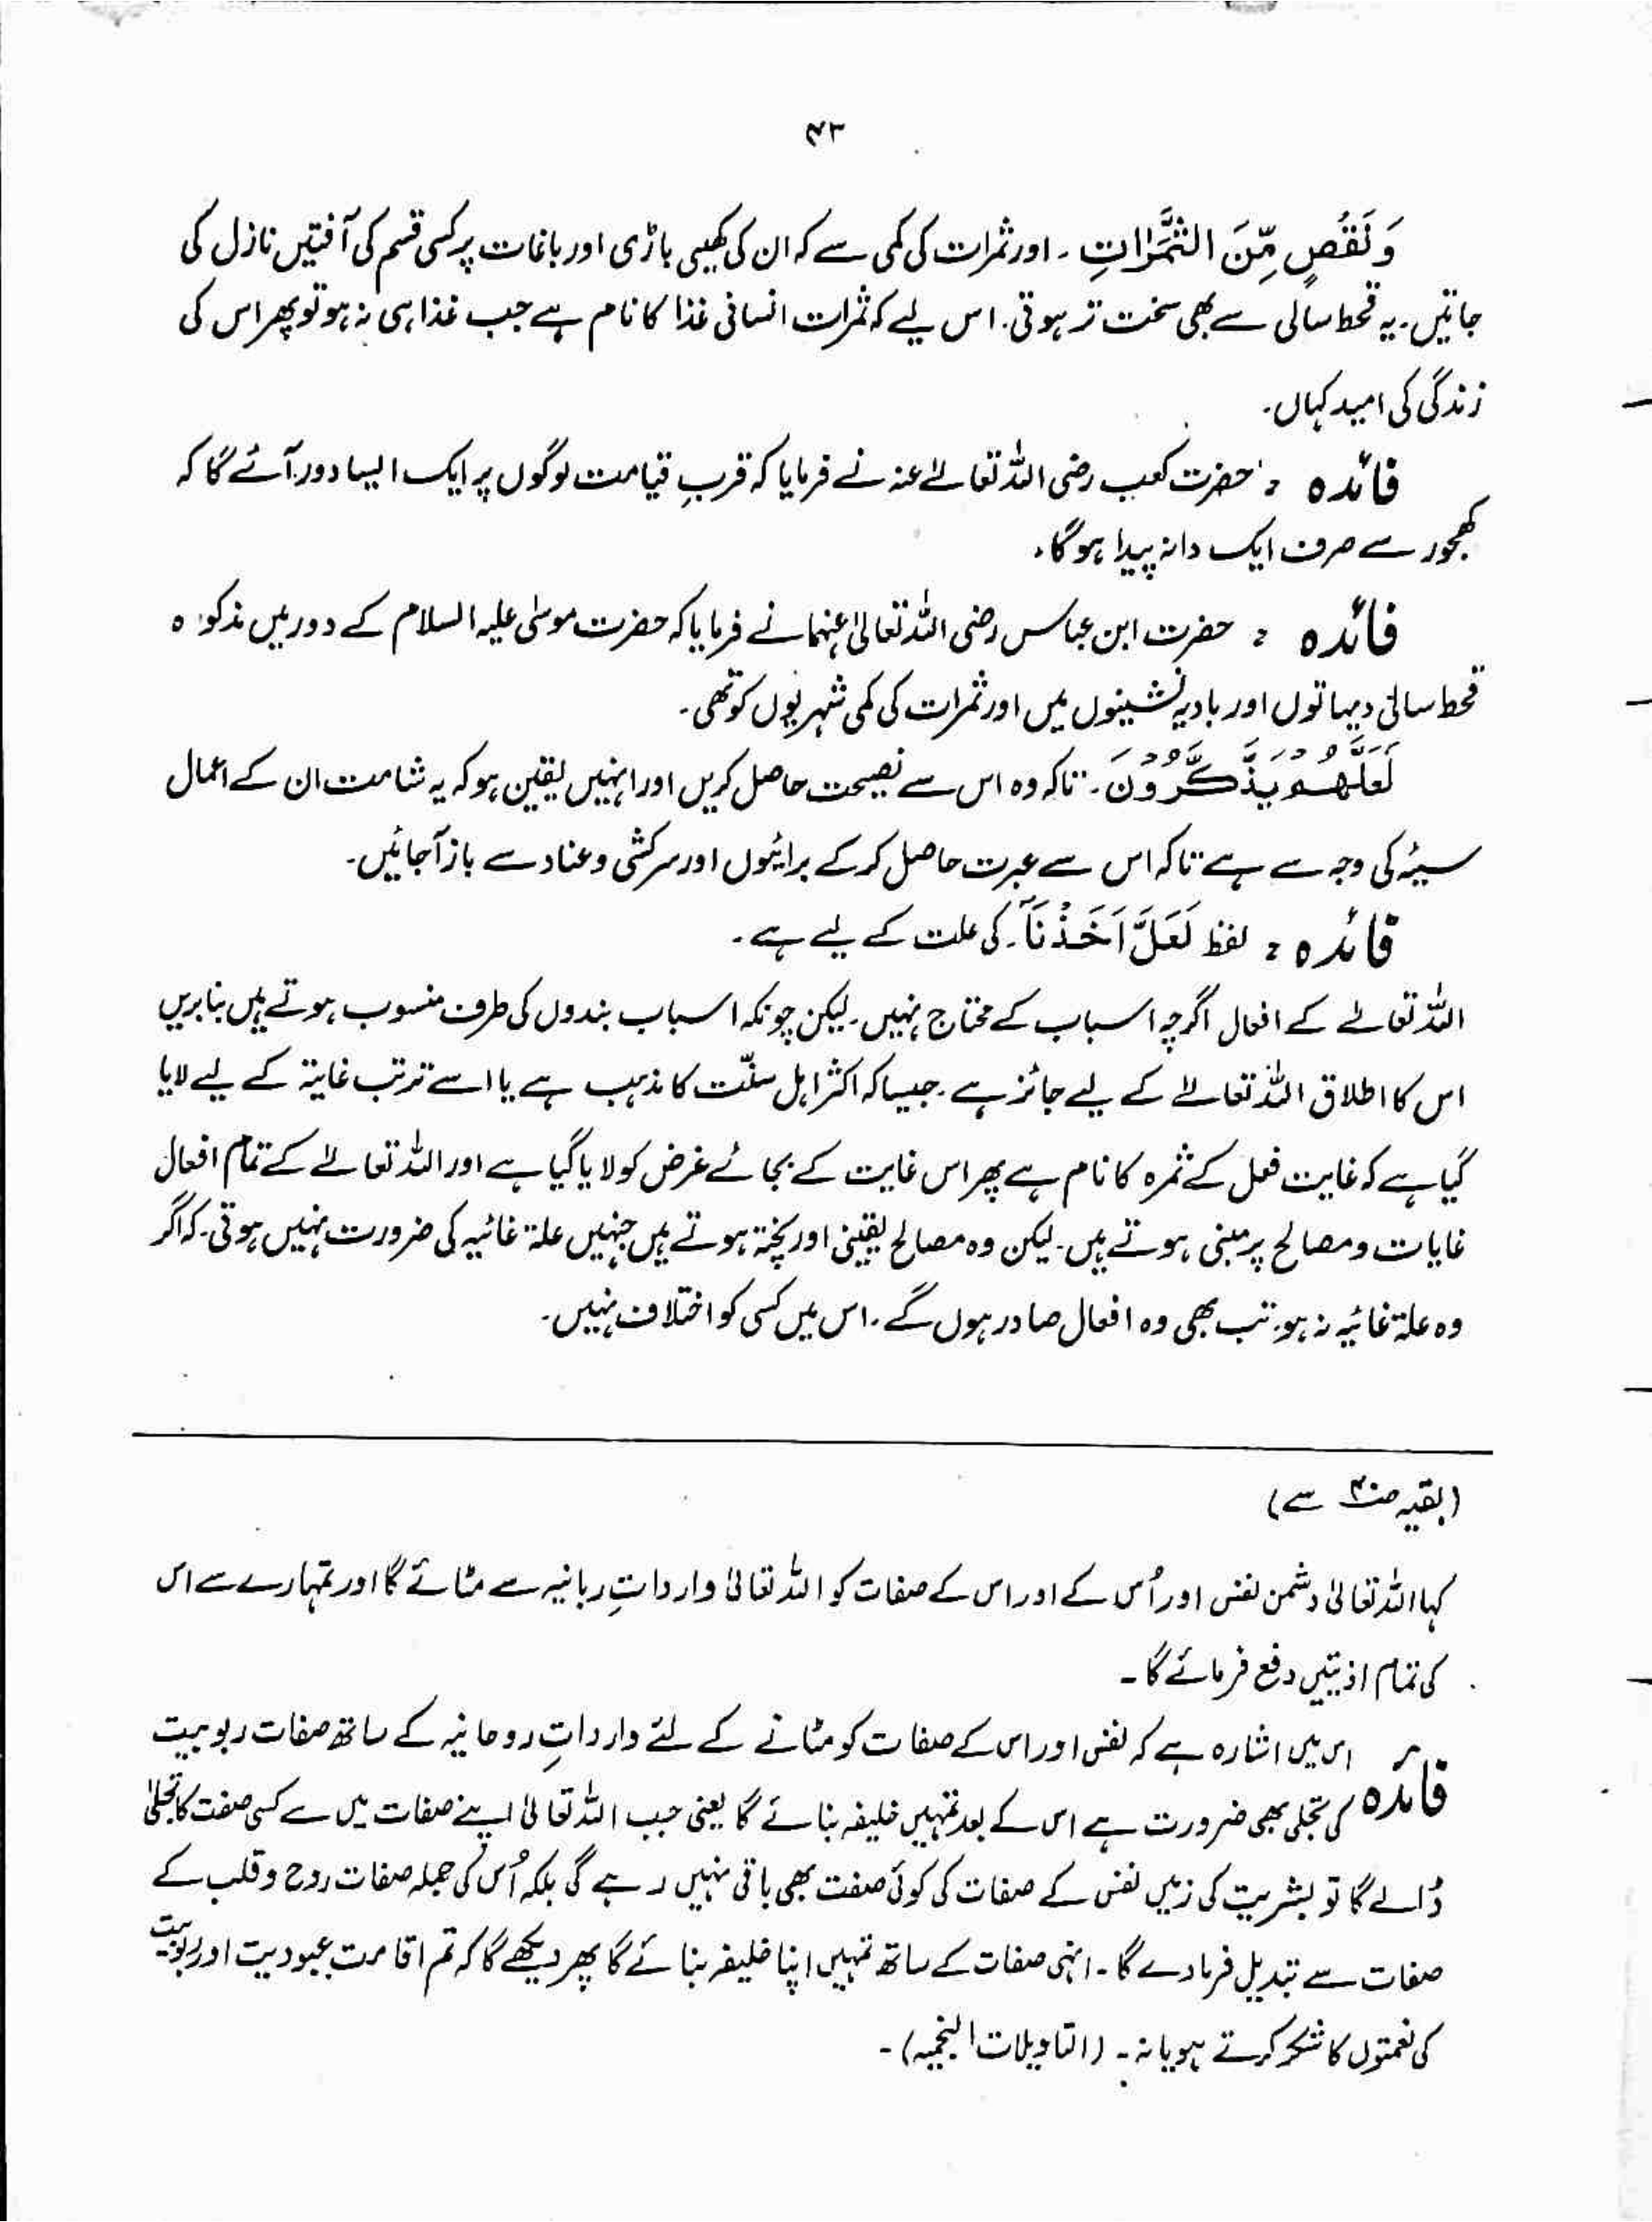 ۴۳
وَنَقْصٍ مِّنَ الثَّمَرَاتِ ۔ اور ثمرات کی کمی سے کہ ان کی کھیتی باڑی اور باغات پر کسی قسم کی آفتیں نازل کی
جاتیں۔ یہ قحط سالی سے بھی سخت تر ہوتی۔ اس لیے کہ ثمرات انسانی غذا کا نام ہے جب غذا ہی نہ ہو تو پھر اس کی
زندگی کی امید کہاں۔
فائدہ : حضرت کعب رضی اللہ تعالےٰ عنہ نے فرمایا کہ قربِ قیامت لوگوں پر ایک ایسا دور آئے گا کہ
کھجور سے صرف ایک دانہ پیدا ہوگا۔
فائدہ : حضرت ابن عباس رضی اللہ تعالیٰ عنہما نے فرمایا کہ حضرت موسٰی علیہ السلام کے دور میں مذکورہ
قحط سالی دیہاتوں اور بادیہ نشینوں میں اور ثمرات کی کمی شہریوں کو تھی۔
لَعَلَّهُمْ يَذَّكَّرُوْنَ ۔ تاکہ وہ اس سے نصیحت حاصل کریں اور انہیں یقین ہو کہ یہ شامت ان کے اعمال
سیئہ کی وجہ سے ہے تاکہ اس سے عبرت حاصل کرکے برائیوں اور سرکشی و عناد سے باز آجائیں۔
فائدہ : لفظ لَعَلَّ اَخَذْنَآ ۔ کی علت کے لیے ہے۔
اللہ تعالےٰ کے افعال اگرچہ اسباب کے محتاج نہیں۔ لیکن چونکہ اسباب بندوں کی طرف منسوب ہوتے ہیں بنابریں
اس کا اطلاق اللہ تعالےٰ کے لیے جائز ہے۔ جیسا کہ اکثر اہل سنّت کا مذہب ہے یا اسے ترتب غایۃ کے لیے لایا
گیا ہے کہ غایت فعل کے ثمرہ کا نام ہے پھر اس غایت کے بجائے غرض کو لایا گیا ہے اور اللہ تعالےٰ کے تمام افعال
غایات و مصالح پر مبنی ہوتے ہیں۔ لیکن وہ مصالح یقینی اور پختہ ہوتے ہیں جنہیں علۃ غائیہ کی ضرورت نہیں ہوتی۔ کہ اگر
وہ علۃ غائیہ نہ ہو۔ تب بھی وہ افعال صادر ہوں گے۔ اس میں کسی کو اختلاف نہیں۔
(بقیہ صـ۴۰ سے)
کہا اللہ تعالیٰ دشمن نفس اور اُس کے اور اس کے صفات کو اللہ تعالیٰ وارداتِ ربانیہ سے مٹائے گا اور تمہارے سے اس
کی تمام اذیتیں دفع فرمائے گا۔
فائدہ اس میں اشارہ ہے کہ نفس اور اس کے صفات کو مٹانے کے لئے وارداتِ روحانیہ کے ساتھ صفات ربوبیت
کی تجلی بھی ضرورت ہے اس کے بعد تمہیں خلیفہ بنائے گا یعنی جب اللہ تعالیٰ اپنے صفات میں سے کسی صفت کا تجلیٰ
ڈالے گا تو بشریت کی زمیں نفس کے صفات کی کوئی صفت بھی باقی نہیں رہے گی بلکہ اُس کی جملہ صفات روح و قلب کے
صفات سے تبدیل فرما دے گا۔ انہی صفات کے ساتھ تمہیں اپنا خلیفہ بنائے گا پھر دیکھے گا کہ تم اقامت عبودیت اور ربوبیت
کی نعمتوں کا شکر کرتے ہو یا نہ۔ (التاویلات النجمیہ)۔